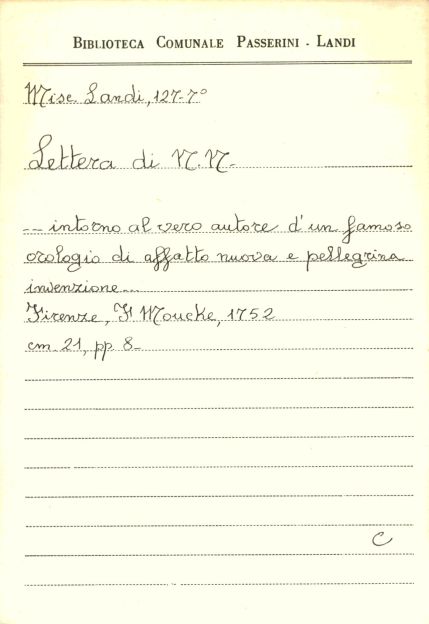 BIBLIOTECA COMUNALE PASSERINI - LANDI
Misc Landi, 127-7°
Lettera di N.N.
-- intorno al vero autore d'un famoso
orologio di affatto nuova e pellegrina
invenzione...
Firenze, F Moucke, 1752
cm 21, pp 8-
C